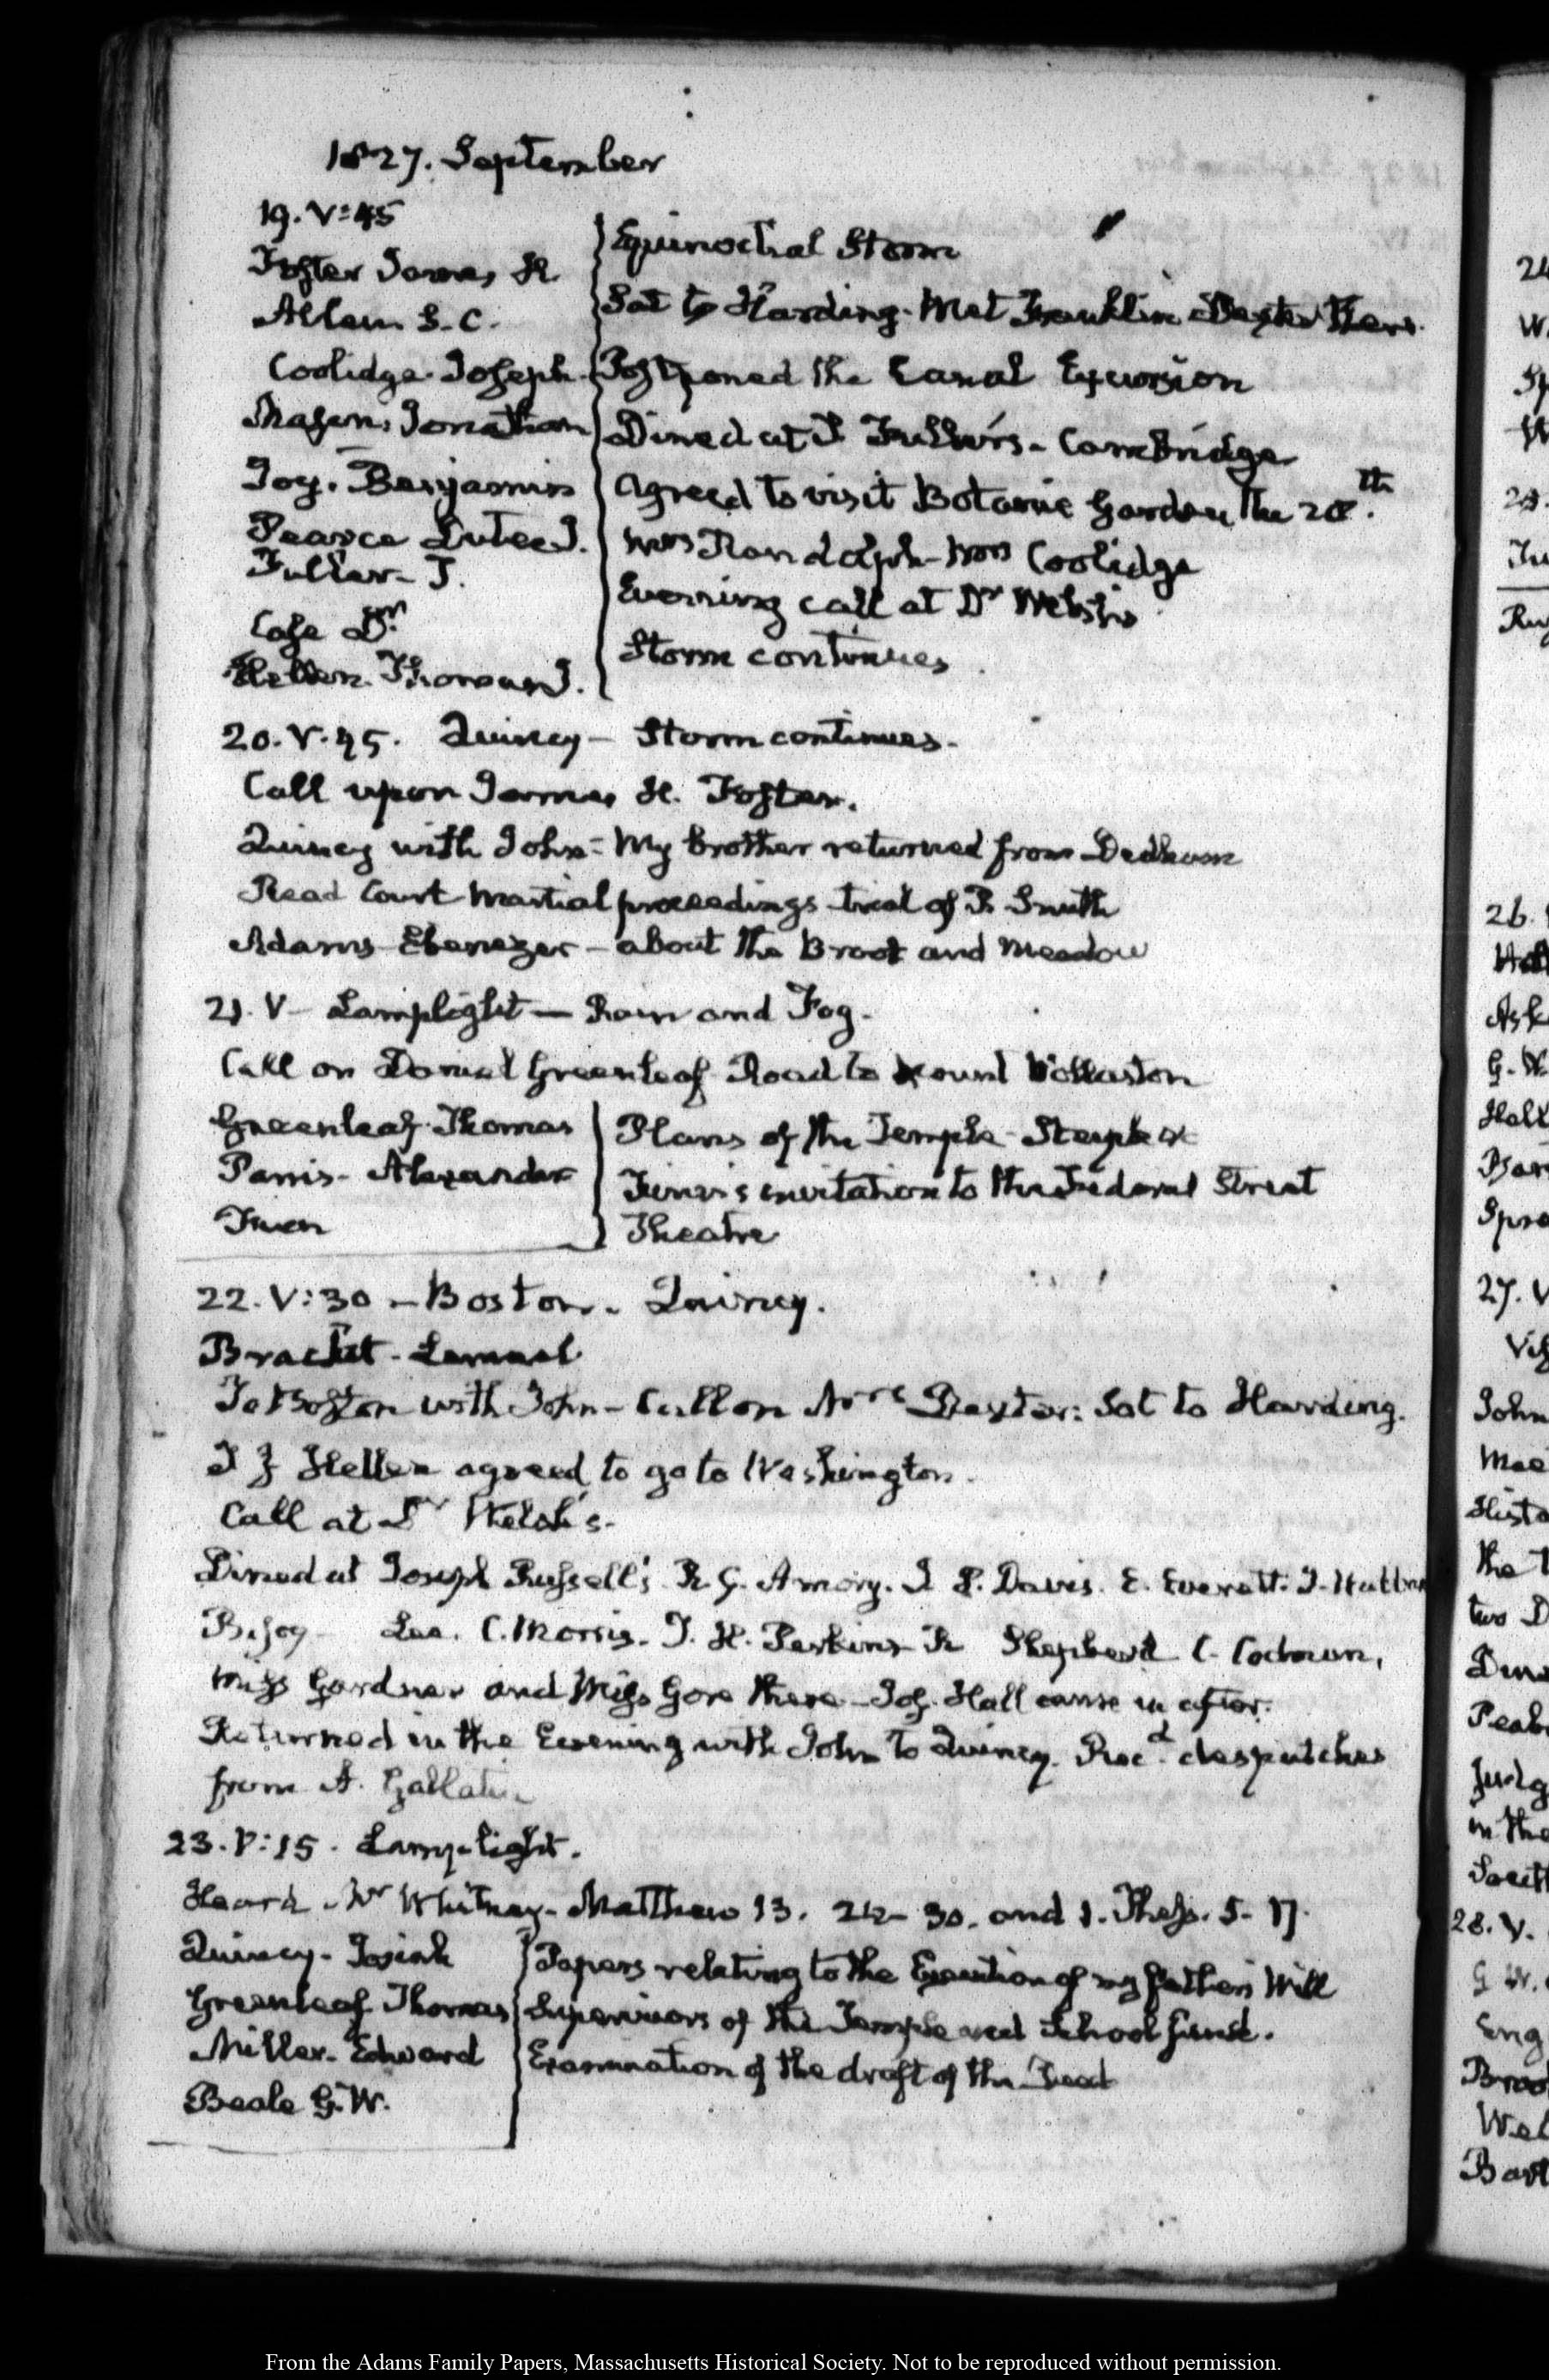 1827. September
19. V:45
Foster James H.
Allen S. C.
Coolidge. Joseph
Mason. Jonathan
Joy. Benjamin
Pearce Dutee J.
Fuller. T.
Case Dr.
Hellen. Thomas J.
Equinoctial Storm
Sat to Harding. Met Franklin Dexter there.
Postponed the Canal Excursion
Dined at T Fuller's. Cambridge
Agreed to visit Botanic Garden the 28th.
Mrs Randolph. Mrs Coolidge
Evening call at Dr
Storm continues
20. V. 45. Quincy — Storm continues.
Call upon James H. Foster.
Quincy with John. My brother returned from Dedham
Read Court Martial proceedings trial of Smith
Adams Ebenezer — about the Brook and Meadow
21. V Lamplight — Rain and Fog.
Call on Daniel Greenleaf. Road to Mount Wollaston
Greenleaf. Thomas
Parris. Alexander
Finn
Plans of the Temple
Finn's invitation to the Federal Street
Theatre
22. V:30 — Boston. Quincy.
Bracket. Lemuel
To Boston with John. Call on Baxter: Sat to Harding.
Hellen agreed to go to Washington.
Call at Dr Welsh's.
Dined at Joseph Russell's. R. G. Amory. I. P. Davis. E. Everett.
B. Joy Lee. C. Morris. T. H. Perkins. R Shepherd C. Codman,
Miss Gardner and Miss Gore there. Jos. Hall came in after.
Returned in the Evening with John to Quincy. Recd. despatches
from A. Gallatin
23. V:15. Lamp-light.
Heard Mr Whitney. Matthew 13. 24-30. and 1. Thess. 5. 17.
Quincy. Josiah
Greenleaf Thomas
Miller. Edward
Beale G. W.
Papers relating to the Execution of my father's Will
Supervisors of the Temple and School fund.
Examination of the draft of the Deed
From the Adams Family Papers, Massachusetts Historical Society. Not to be reproduced without permission.